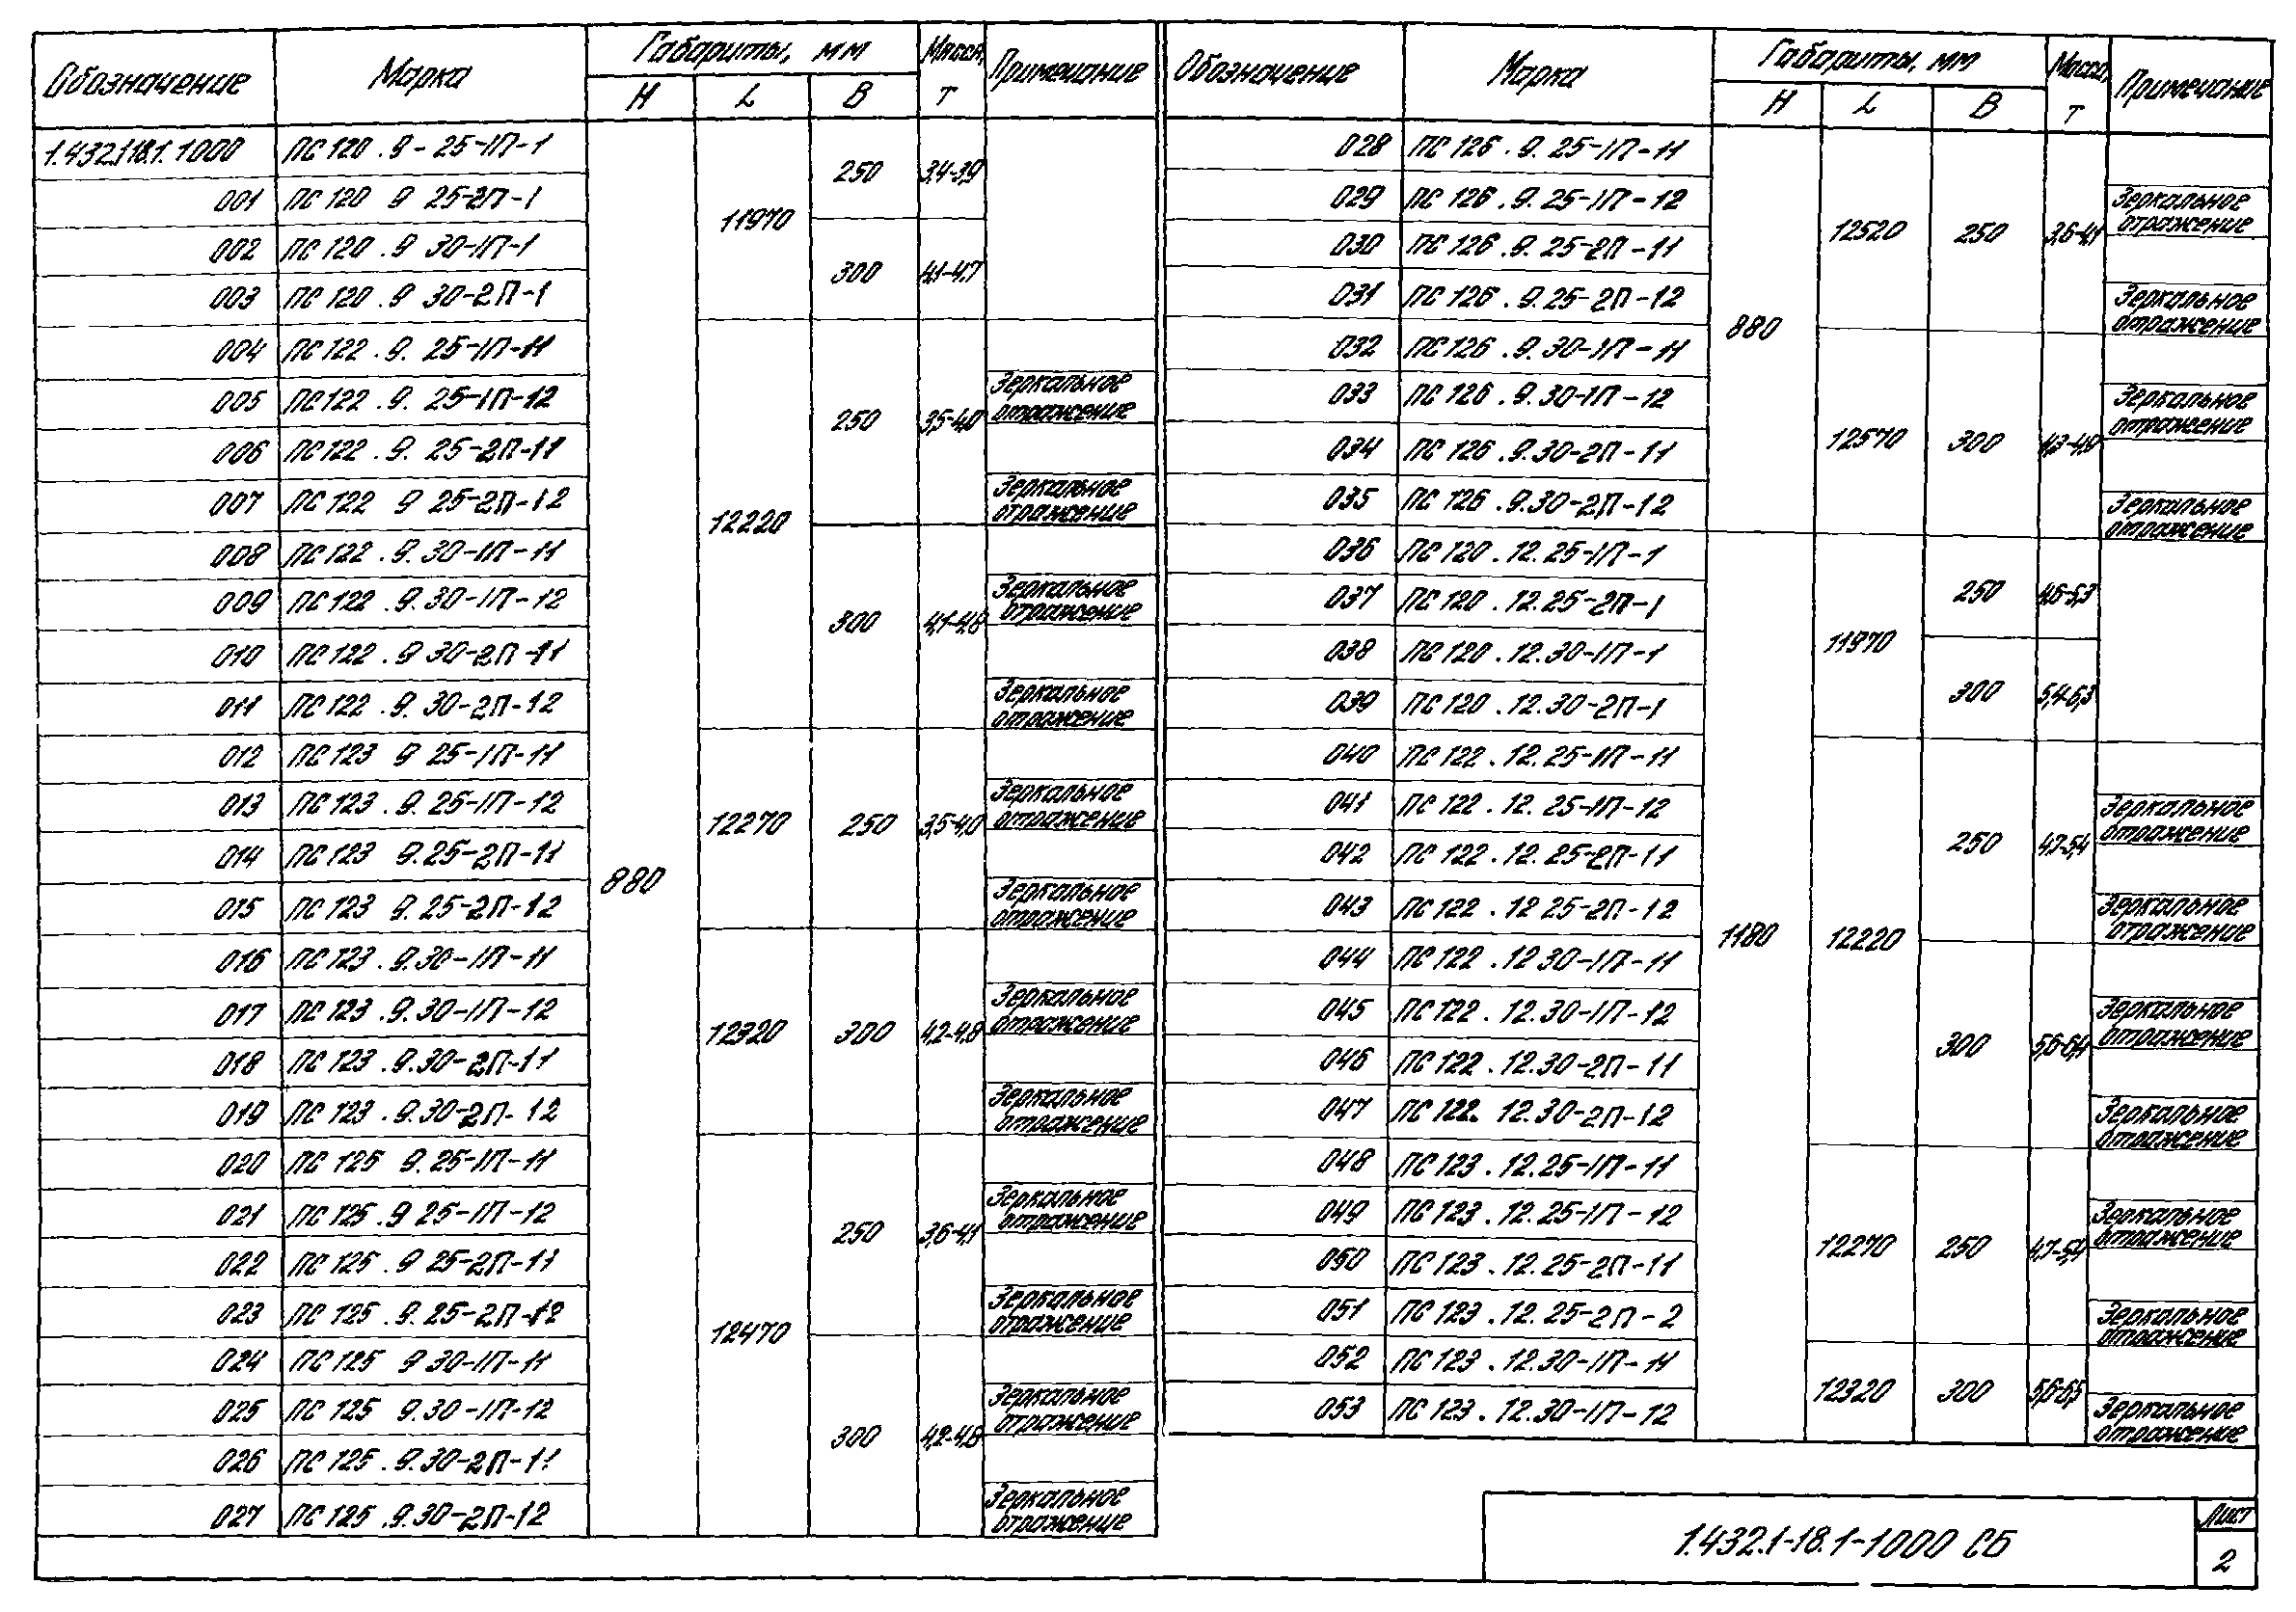 Обозначение Марка Габариты, мм Масса, т Примечание
H L B
1.432.1-18.1. 1000 ПС 120 . 9 - 25-1П-1 880 11970 250 3,4-3,9
001 ПС 120 9 25-2П-1
002 ПС 120 . 9 30-1П-1 300 4,1-4,7
003 ПС 120 . 9 30-2П-1
004 ПС 122 . 9. 25-1П-11 12220 250 3,5-4,0
005 ПС 122 . 9. 25-1П-12 Зеркальное отражение
006 ПС 122 . 9. 25-2П-11
007 ПС 122 9 25-2П-12 Зеркальное отражение
008 ПС 122 . 9. 30-1П-11 300 4,1-4,8
009 ПС 122 . 9. 30-1П-12 Зеркальное отражение
010 ПС 122 . 9 30-2П-11
011 ПС 122 . 9. 30-2П-12 Зеркальное отражение
012 ПС 123 9 25-1П-11 12270 250 3,5-4,0
013 ПС 123 . 9. 25-1П-12 Зеркальное отражение
014 ПС 123 9. 25-2П-11
015 ПС 123 9. 25-2П-12 Зеркальное отражение
016 ПС 123 . 9. 30-1П-11 12320 300 4,2-4,8
017 ПС 123 . 9. 30-1П-12 Зеркальное отражение
018 ПС 123 . 9. 30-2П-11
019 ПС 123 . 9. 30-2П-12 Зеркальное отражение
020 ПС 125 9. 25-1П-11 12470 250 3,6-4,1
021 ПС 125 . 9 25-1П-12 Зеркальное отражение
022 ПС 125 . 9 25-2П-11
023 ПС 125 . 9. 25-2П-12 Зеркальное отражение
024 ПС 125 9 30-1П-11 300 4,2-4,8
025 ПС 125 9. 30-1П-12 Зеркальное отражение
026 ПС 125 . 9. 30-2П-11
027 ПС 125 . 9. 30-2П-12 Зеркальное отражение
Обозначение Марка Габариты, мм Масса, т Примечание
H L B
028 ПС 126 . 9. 25-1П-11 880 12520 250 3,6-4,1
029 ПС 126 . 9. 25-1П-12 Зеркальное отражение
030 ПС 126 . 9. 25-2П-11
031 ПС 126 . 9. 25-2П-12 Зеркальное отражение
032 ПС 126 . 9. 30-1П-11 12570 300 4,3-4,8
033 ПС 126 . 9. 30-1П-12 Зеркальное отражение
034 ПС 126 . 9. 30-2П-11
035 ПС 126 . 9. 30-2П-12 Зеркальное отражение
036 ПС 120 . 12. 25-1П-1 1180 11970 250 4,6-5,3
037 ПС 120 . 12. 25-2П-1
038 ПС 120 . 12. 30-1П-1 300 5,4-6,3
039 ПС 120 . 12. 30-2П-1
040 ПС 122 . 12. 25-1П-11 12220 250 4,7-5,4
041 ПС 122 . 12. 25-1П-12 Зеркальное отражение
042 ПС 122 . 12. 25-2П-11
043 ПС 122 . 12 25-2П-12 Зеркальное отражение
044 ПС 122 . 12 30-1П-11 300 5,6-6,4
045 ПС 122 . 12. 30-1П-12 Зеркальное отражение
046 ПС 122 . 12. 30-2П-11
047 ПС 122. 12. 30-2П-12 Зеркальное отражение
048 ПС 123 . 12. 25-1П-11 12270 250 4,7-5,4
049 ПС 123 . 12. 25-1П-12 Зеркальное отражение
050 ПС 123 . 12. 25-2П-11
051 ПС 123 . 12. 25-2П-2 Зеркальное отражение
052 ПС 123 . 12. 30-1П-11 12320 300 5,6-6,5
053 ПС 123 . 12. 30-1П-12 Зеркальное отражение
1.432.1-18.1-1000 СБ
Лист
2